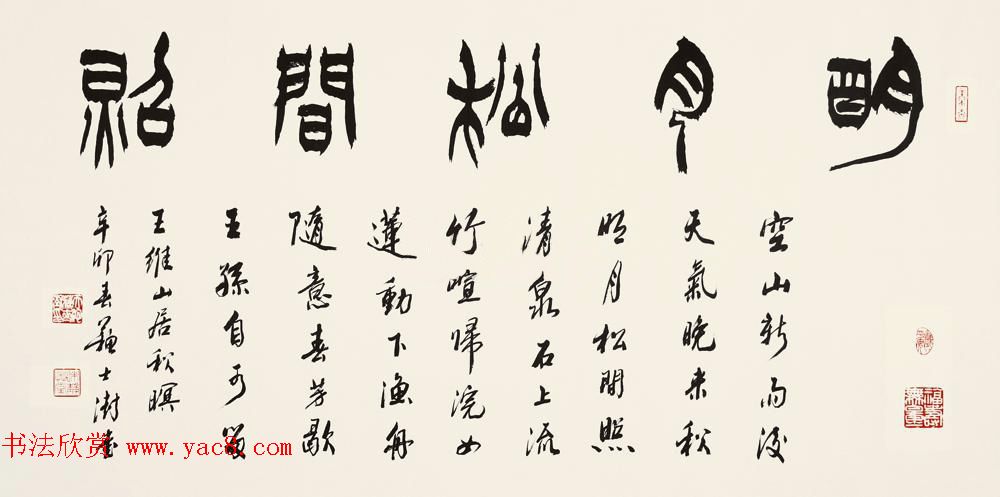 明月松間照
空山新雨後
天氣晚来秋
明月松間照
清泉石上流
竹喧歸浣女
蓮動下漁舟
隨意春芳歇
王孫自可留
王維山居秋暝
辛卯春蘇士澍書
福壽無量
书法欣赏 www.yac8.com